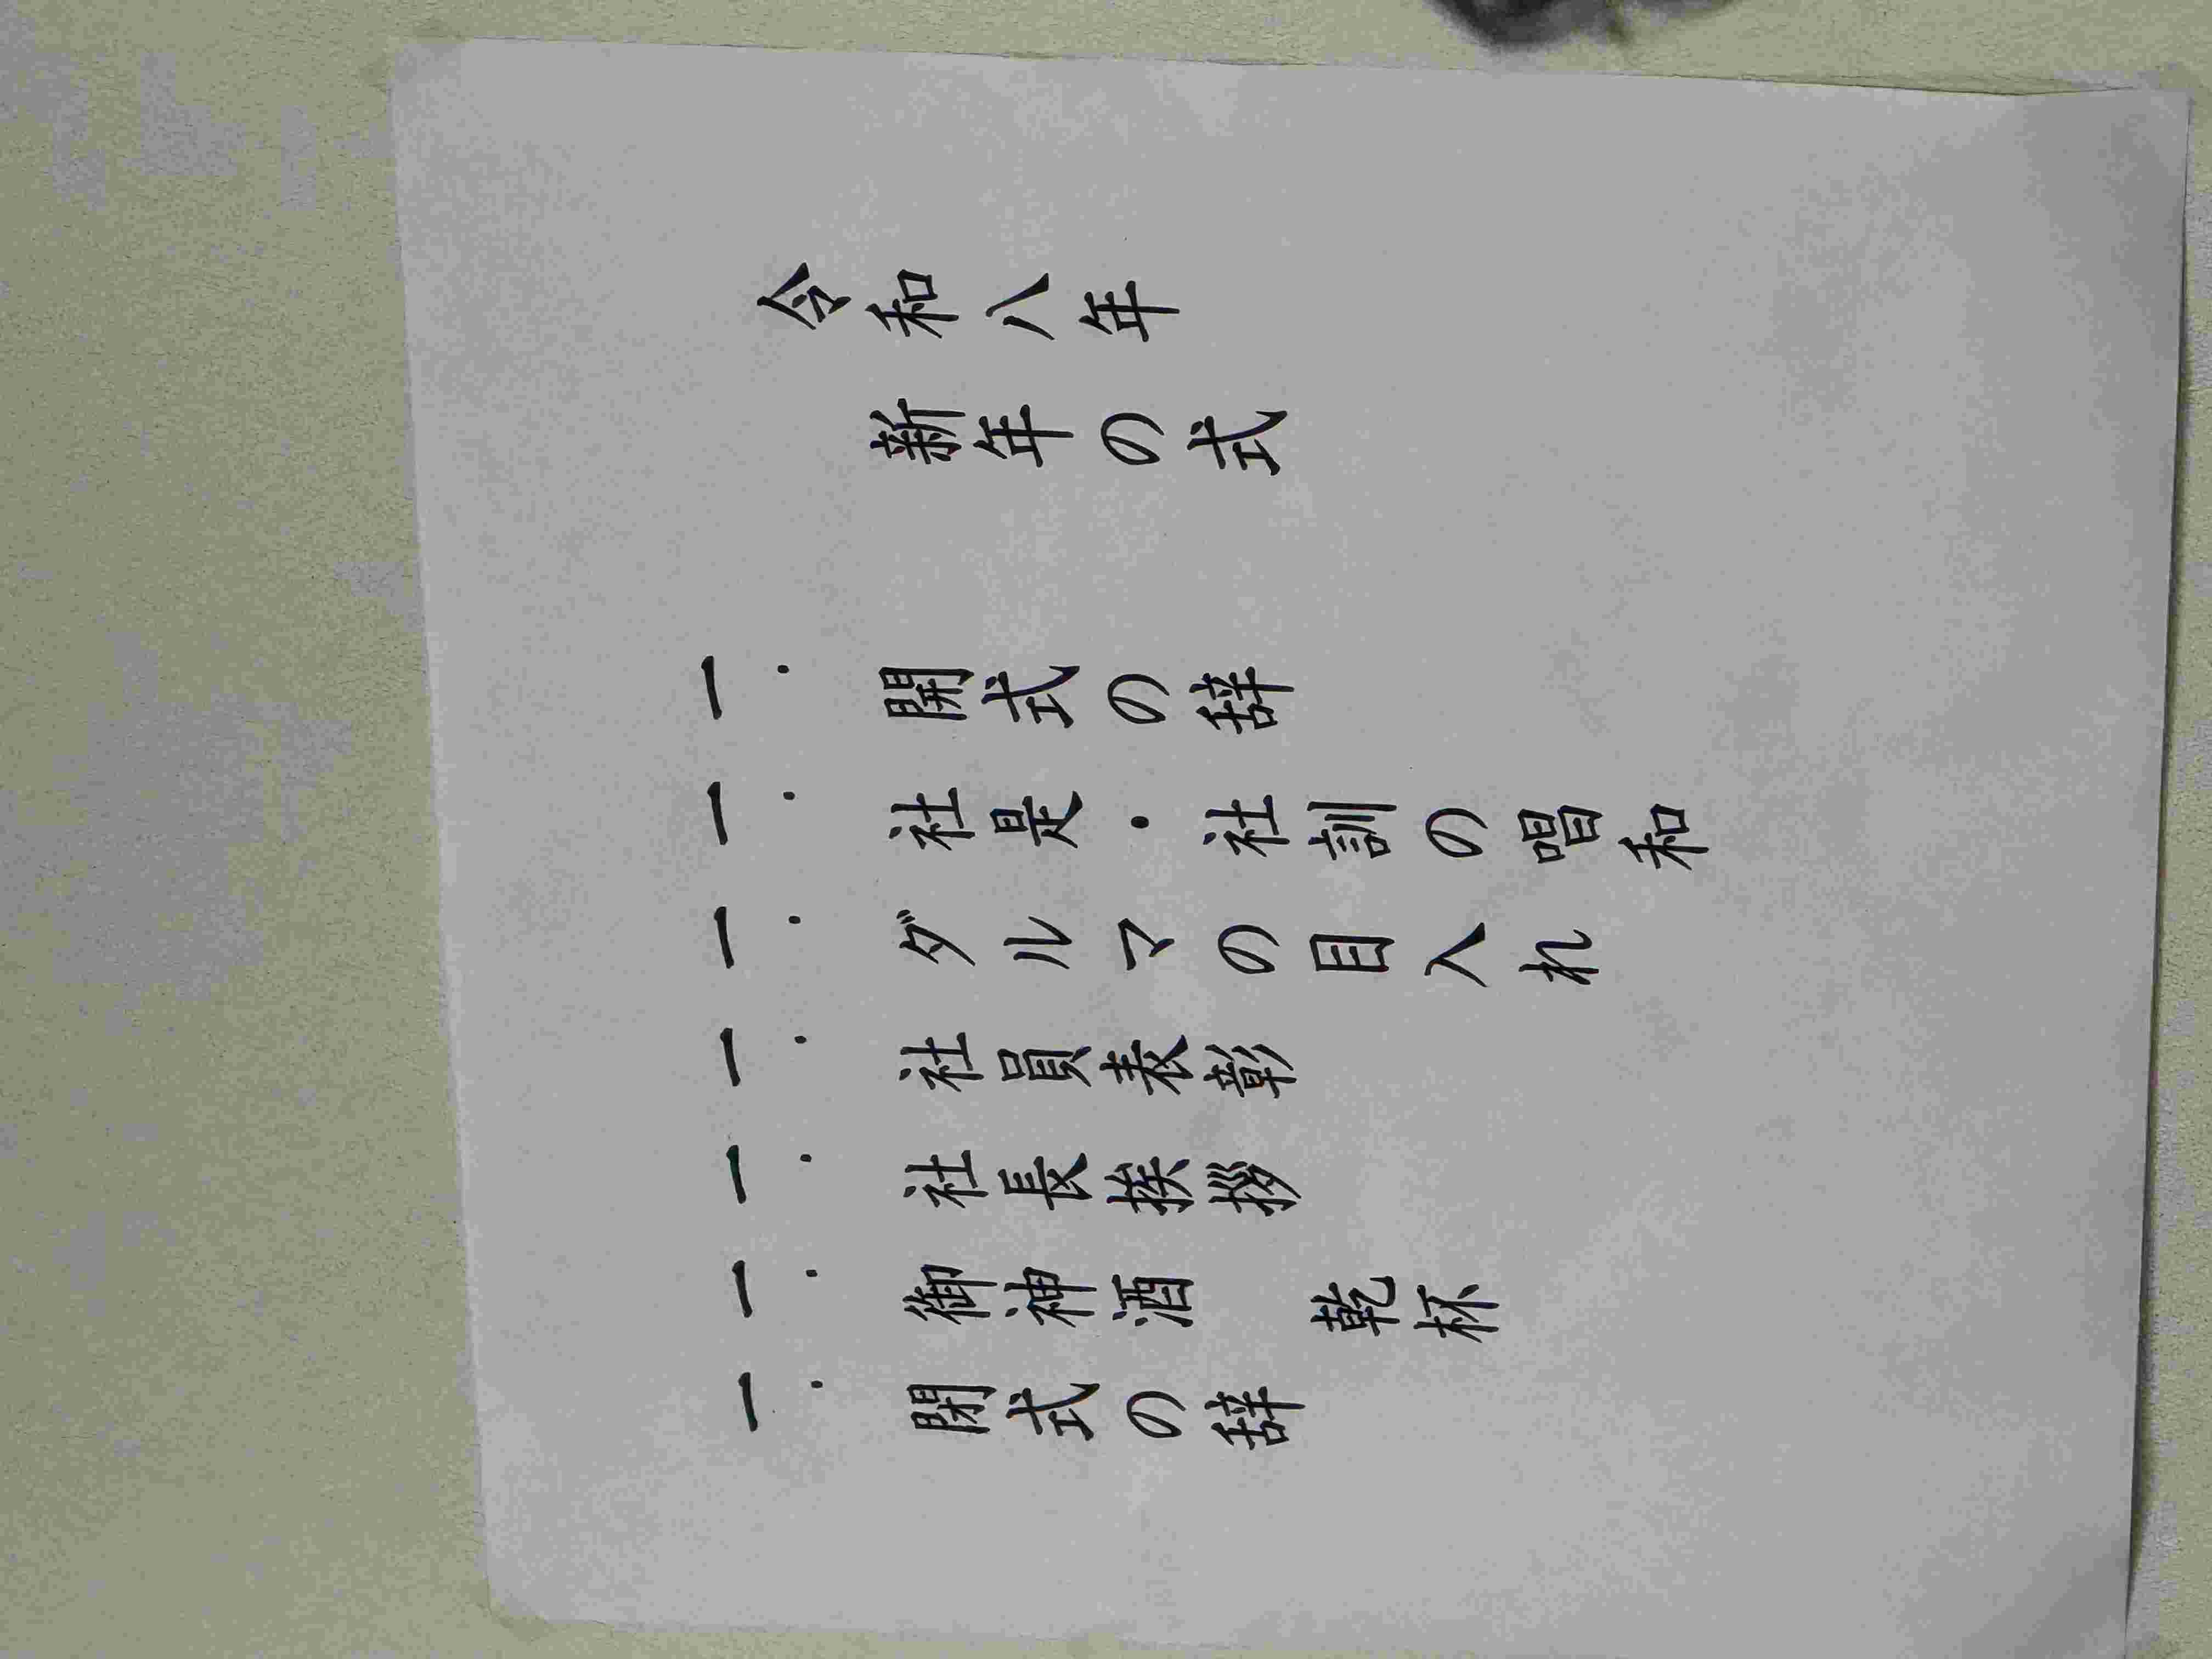 令和八年
新年の式
一. 開式の辞
一. 社是・社訓の唱和
一. ダルマの目入れ
一. 社員表彰
一. 社長挨拶
一. 御神酒　乾杯
一. 閉式の辞